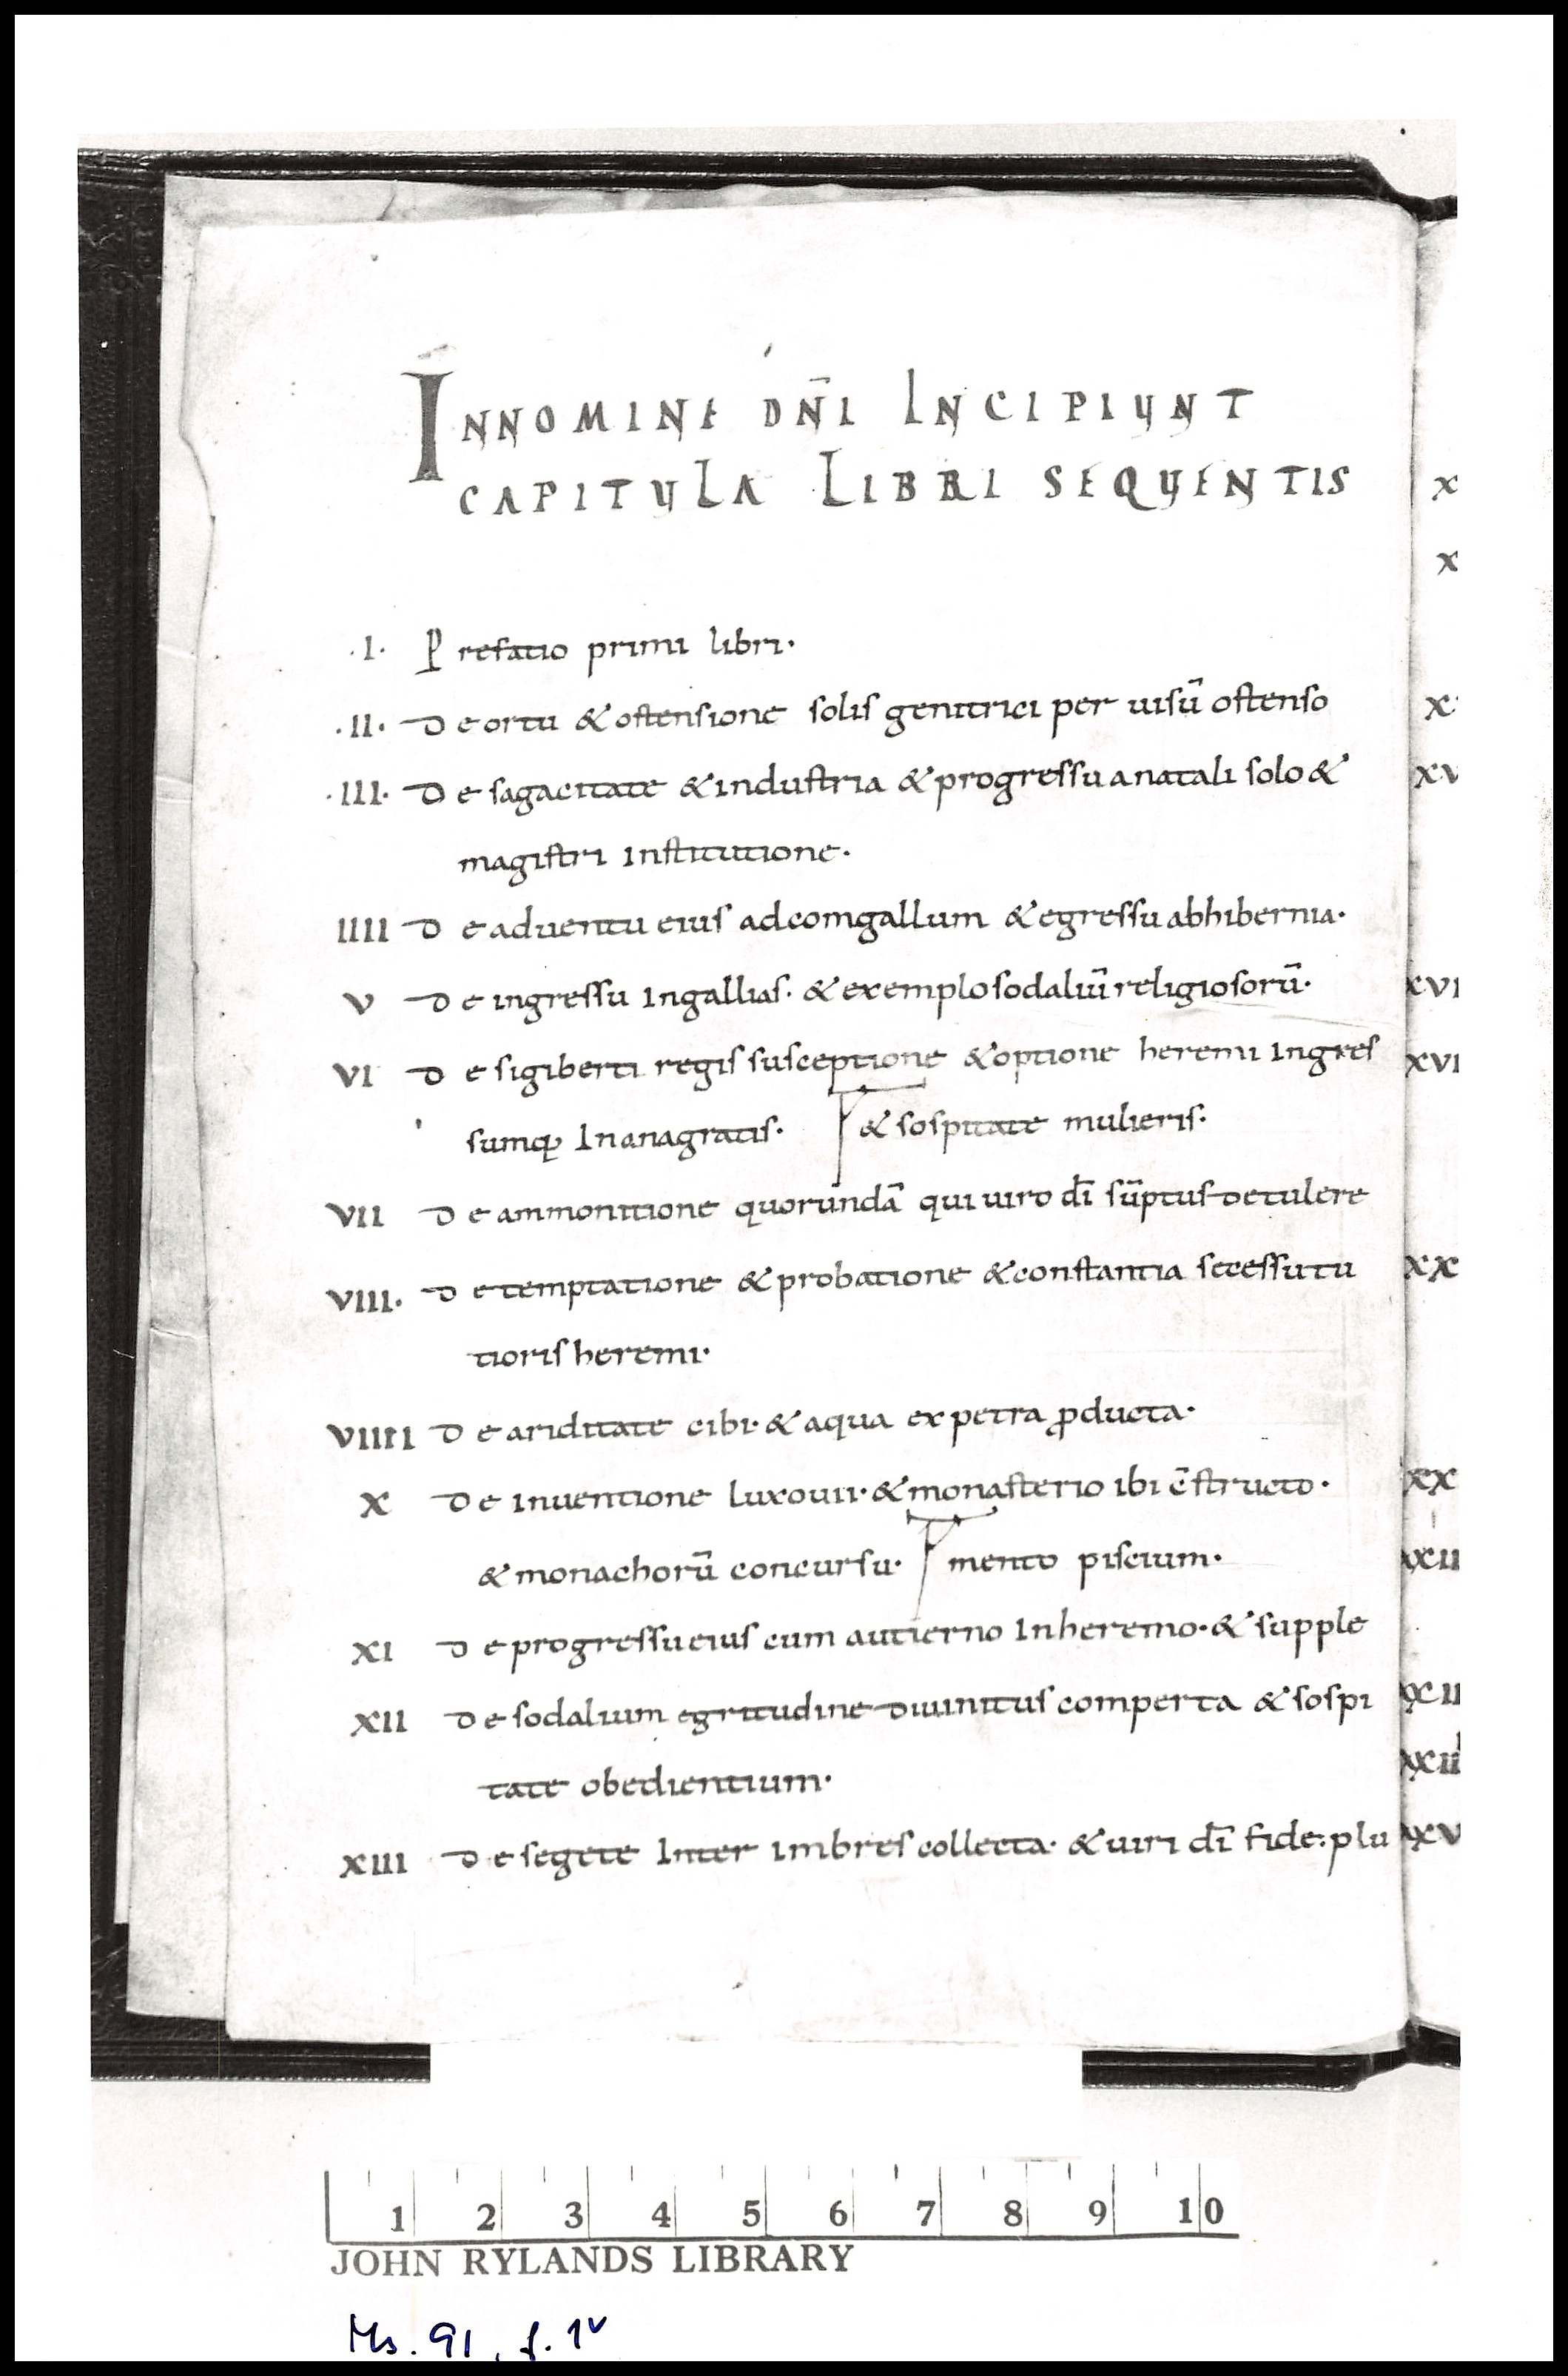 INNOMINE DN̄I INCIPIUNT
CAPITULA LIBRI SEQUENTIS
.I. Prefatio primi libri.
.II. De ortu & ostensione solis genitrici per uisū ostenso
.III. De sagacitate & industria & progressu anatali solo &
magistri Institutione.
IIII De aduentu eius adcomgallum & egressu abhibernia.
V De ingressu Ingallias. & exemplo sodaliū religiosorū.
VI De sigiberti regis susceptione & optione heremi Ingres
sumq; Inanagratis. & sospitate mulieris.
VII De ammonitione quorundā qui uiro dī sūptus detulere
VIII. De temptatione & probatione & constantia secessu tu
tioris heremi.
VIIII De ariditate cibi. & aqua ex petra ꝓducta.
X De inuentione luxouii. & monasterio ibi c̄structo.
& monachorū concursu. mento piscium.
XI De progressu eius cum autierno Inheremo. & supple
XII De sodalium egritudine diuinitus comperta & sospi
tate obedientium.
XIII De segete Inter imbres collecta. & uiri dī fide. plu
X
X
X
XV
XVI
XVI
XX
XX
XXII
XXII
XXII
XXV
1 2 3 4 5 6 7 8 9 10
JOHN RYLANDS LIBRARY
Ms. 91, f. 1v